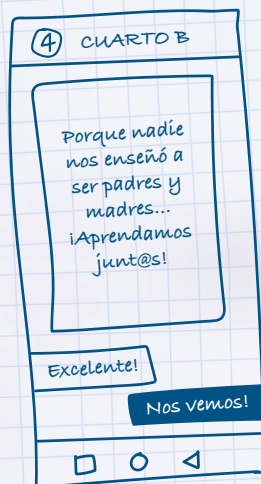 4 CUARTO B
Porque nadie
nos enseñó a
ser padres y
madres...
¡Aprendamos
junt@s!
Excelente!
Nos vemos!